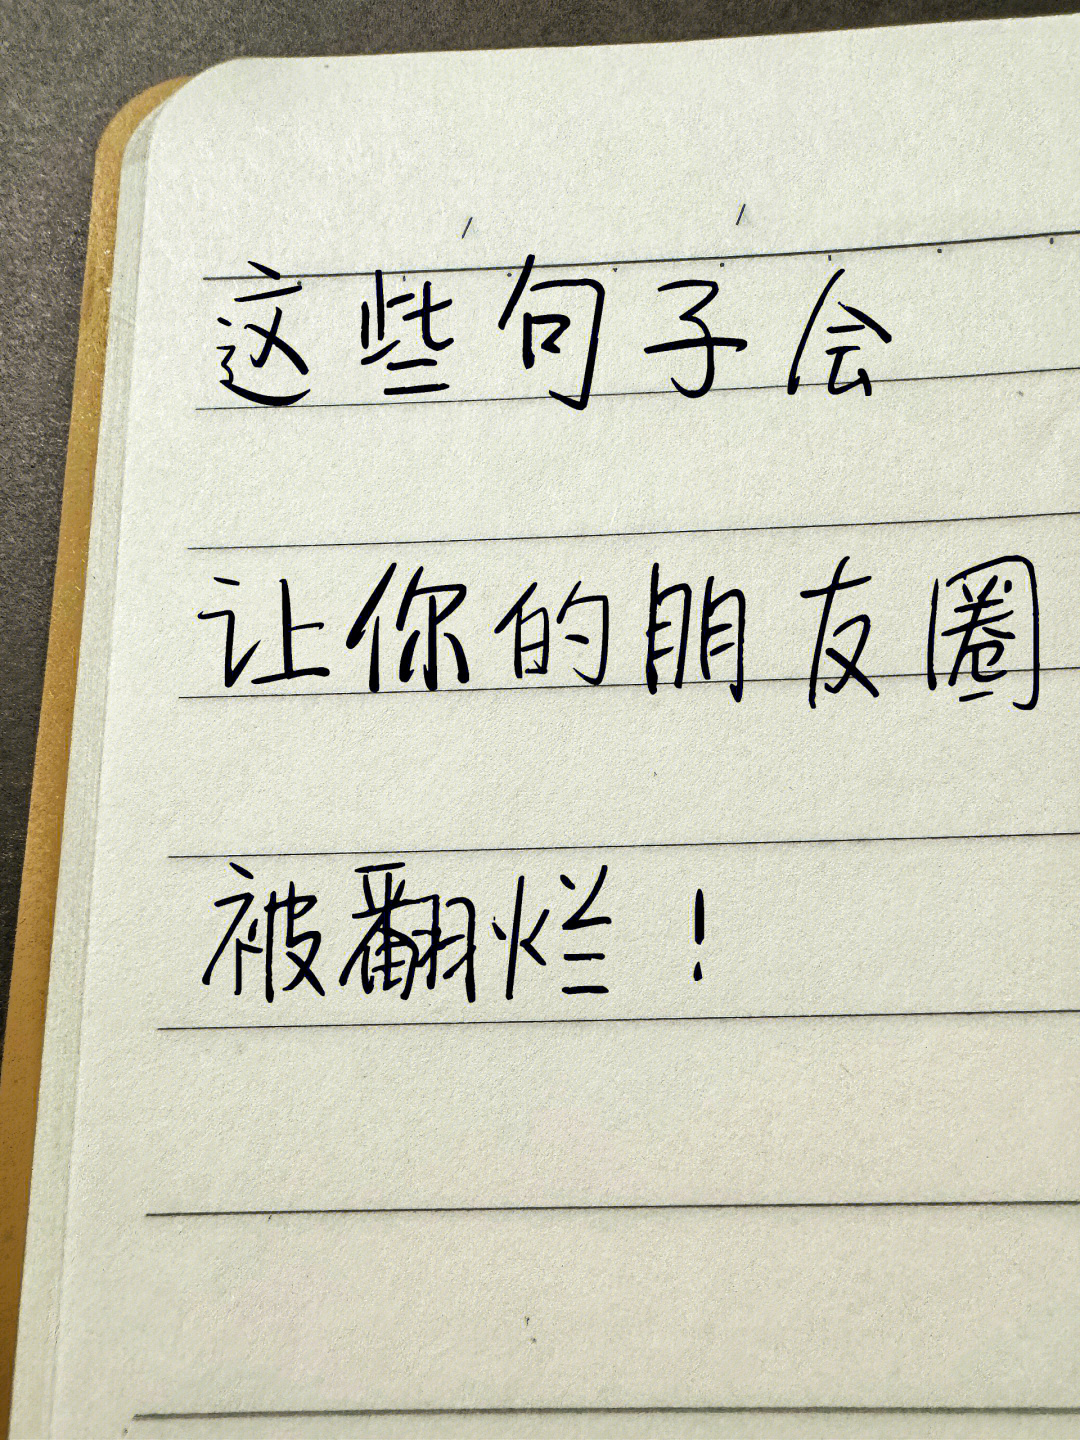 这些句子会
让你的朋友圈
被翻烂！